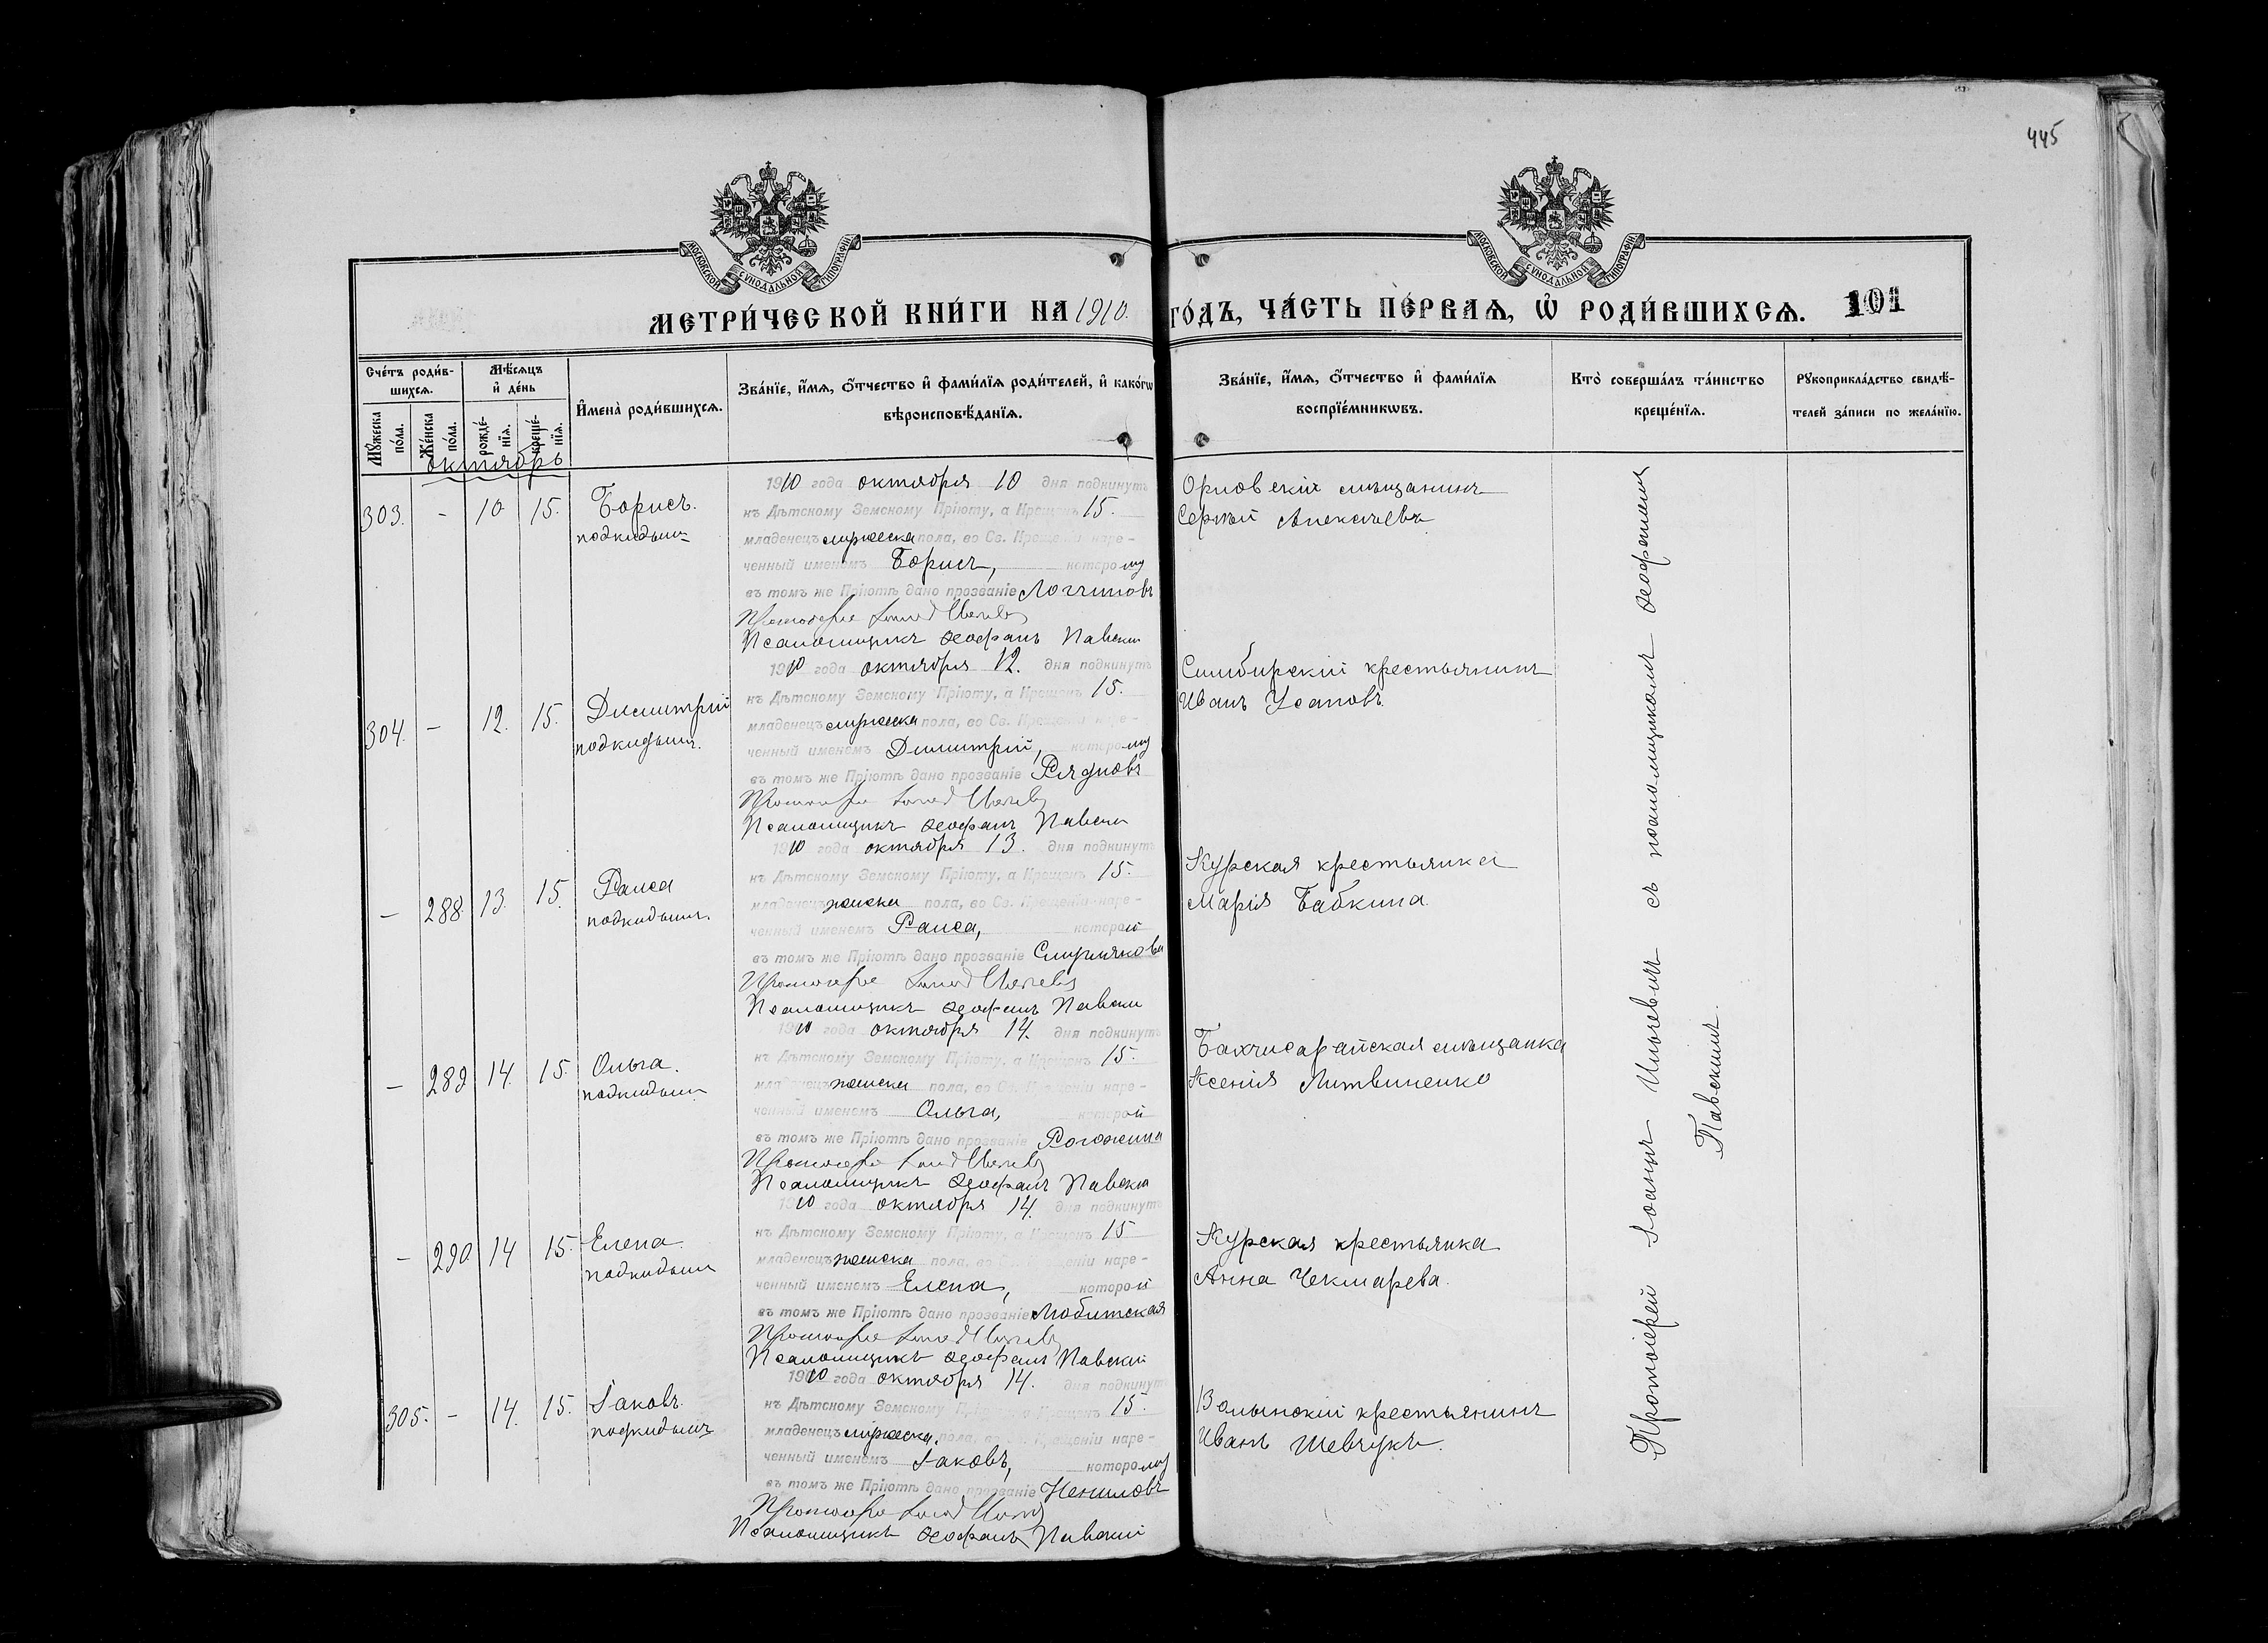 445
МОСКОВСКОЙ СѴНОДАЛЬНОЙ ТИПОГРАФІИ
МОСКОВСКОЙ СѴНОДАЛЬНОЙ ТИПОГРАФІИ
МЕТРИ́ЧЕСКОЙ КНИ́ГИ НА 1910. ГО́ДЪ, ЧА́СТЬ ПЕ́РВАѦ, Ѡ҆ РОДИ́ВШИХСѦ. 101
Сче́тъ роди́в-
шихсѧ.
Мꙋ́жеска
по́ла.
Же́нска
по́ла.
Мѣ́сѧцъ
и҆ де́нь
рожде́-
нїѧ.
креще́-
нїѧ.
И҆мена̀ роди́вшихсѧ.
Зва́нїе, и҆́мѧ, ѻ҆́тчество и҆ фами́лїѧ роди́телей, и҆ како́гѡ
вѣроисповѣ́данїѧ.
Зва́нїе, и҆́мѧ, ѻ҆́тчество и҆ фами́лїѧ
воспрїе́мникѡвъ.
Кто̀ соверша́лъ та́инство
креще́нїѧ.
Рꙋкоприкла́дство свидѣ́-
телей за́писи по жела́нїю.
октябрь
303. - 10 15. Борисъ.
подкидышъ
1910 года октября 10 дня подкинутъ
къ Дѣтскому Земскому Пріюту, а Крещенъ 15.
младенецъ мужеска пола, во Св. Крещеніи наре-
ченный именемъ Борисъ, которому
въ томъ же Пріютѣ дано прозваніе Логгиновъ
Псаломщикъ Ѳеофанъ Павскій
Орловскій мѣщанинъ
Сергѣй Алексѣевъ
304. - 12. 15. Димитрій
подкидышъ.
1910 года октября 12. дня подкинутъ
къ Дѣтскому Земскому Пріюту, а Крещенъ 15.
младенецъ мужеска пола, во Св. Крещеніи наре-
ченный именемъ Димитрій, которому
въ томъ же Пріютѣ дано прозваніе Рядновъ
Псаломщикъ Ѳеофанъ Павскій
Симбирскій крестьянинъ
Иванъ Усановъ.
- 288. 13. 15. Раиса
подкидышъ.
1910 года октября 13. дня подкинутъ
къ Дѣтскому Земскому Пріюту, а Крещенъ 15.
младенецъ женска пола, во Св. Крещеніи наре-
ченный именемъ Раиса, которой
въ томъ же Пріютѣ дано прозваніе Смурякова
Псаломщикъ Ѳеофанъ Павскій
Курская крестьянка
Марія Бабкина.
- 289 14. 15. Ольга.
подкидышъ
1910 года октября 14. дня подкинутъ
къ Дѣтскому Земскому Пріюту, а Крещенъ 15.
младенецъ женска пола, во Св. Крещеніи наре-
ченный именемъ Ольга, которой
въ томъ же Пріютѣ дано прозваніе Рогожина
Псаломщикъ Ѳеофанъ Павскій
Бахчисарайская мѣщанка
Ксенія Литвиненко
- 290 14 15. Елена.
подкидышъ
1910 года октября 14. дня подкинутъ
къ Дѣтскому Земскому Пріюту, а Крещенъ 15
младенецъ женска пола, во Св. Крещеніи наре-
ченный именемъ Елена, которой
въ томъ же Пріютѣ дано прозваніе Любитская
Псаломщикъ Ѳеофанъ Павскій
Курская крестьянка
Анна Чекмарева.
305. - 14. 15. Іаковъ.
подкидышъ
1910 года октября 14. дня подкинутъ
къ Дѣтскому Земскому Пріюту, а Крещенъ 15.
младенецъ мужеска пола, во Св. Крещеніи наре-
ченный именемъ Іаковъ, которому
въ томъ же Пріютѣ дано прозваніе Нениловъ
Псаломщикъ Ѳеофанъ Павскій
Волынскій крестьянинъ
Иванъ Шевчукъ.
Протоіерей Іоаннъ Ильевичъ съ псаломщикомъ Ѳеофаномъ
Павскимъ.